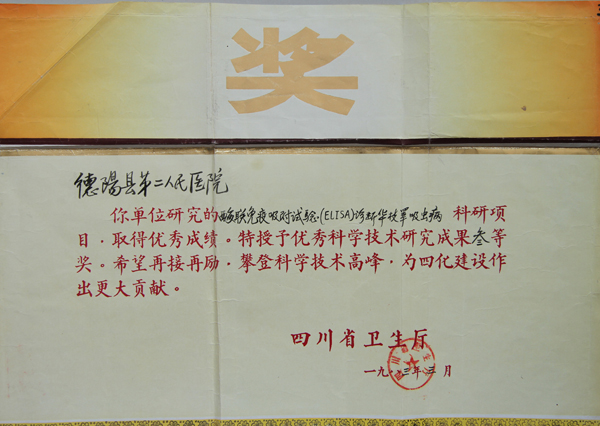 奖
德阳县第二人民医院
你单位研究的酶联免疫吸附试验(ELISA)诊断华枝睪吸虫病 科研项
目,取得优秀成绩。特授予优秀科学技术研究成果叁等
奖。希望再接再励,攀登科学技术高峰,为四化建设作
出更大贡献。
四川省卫生厅
一九八三年三月